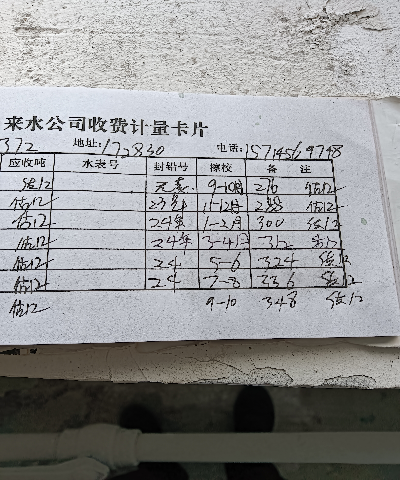 来水公司收费计量卡片
372 地址:175830 电话:15714569748
应收吨 水表号 封铅号 檫校 备 注
估12 9-10月 276 估12
估12 23年 11-12月 288 估12
估12 24年 1-2月 300 估12
估12 24年 3-4月 312 估12
估12 24 5-6 324 估12
估12 24 7-8 336 估12
估12 9-10 348 估12